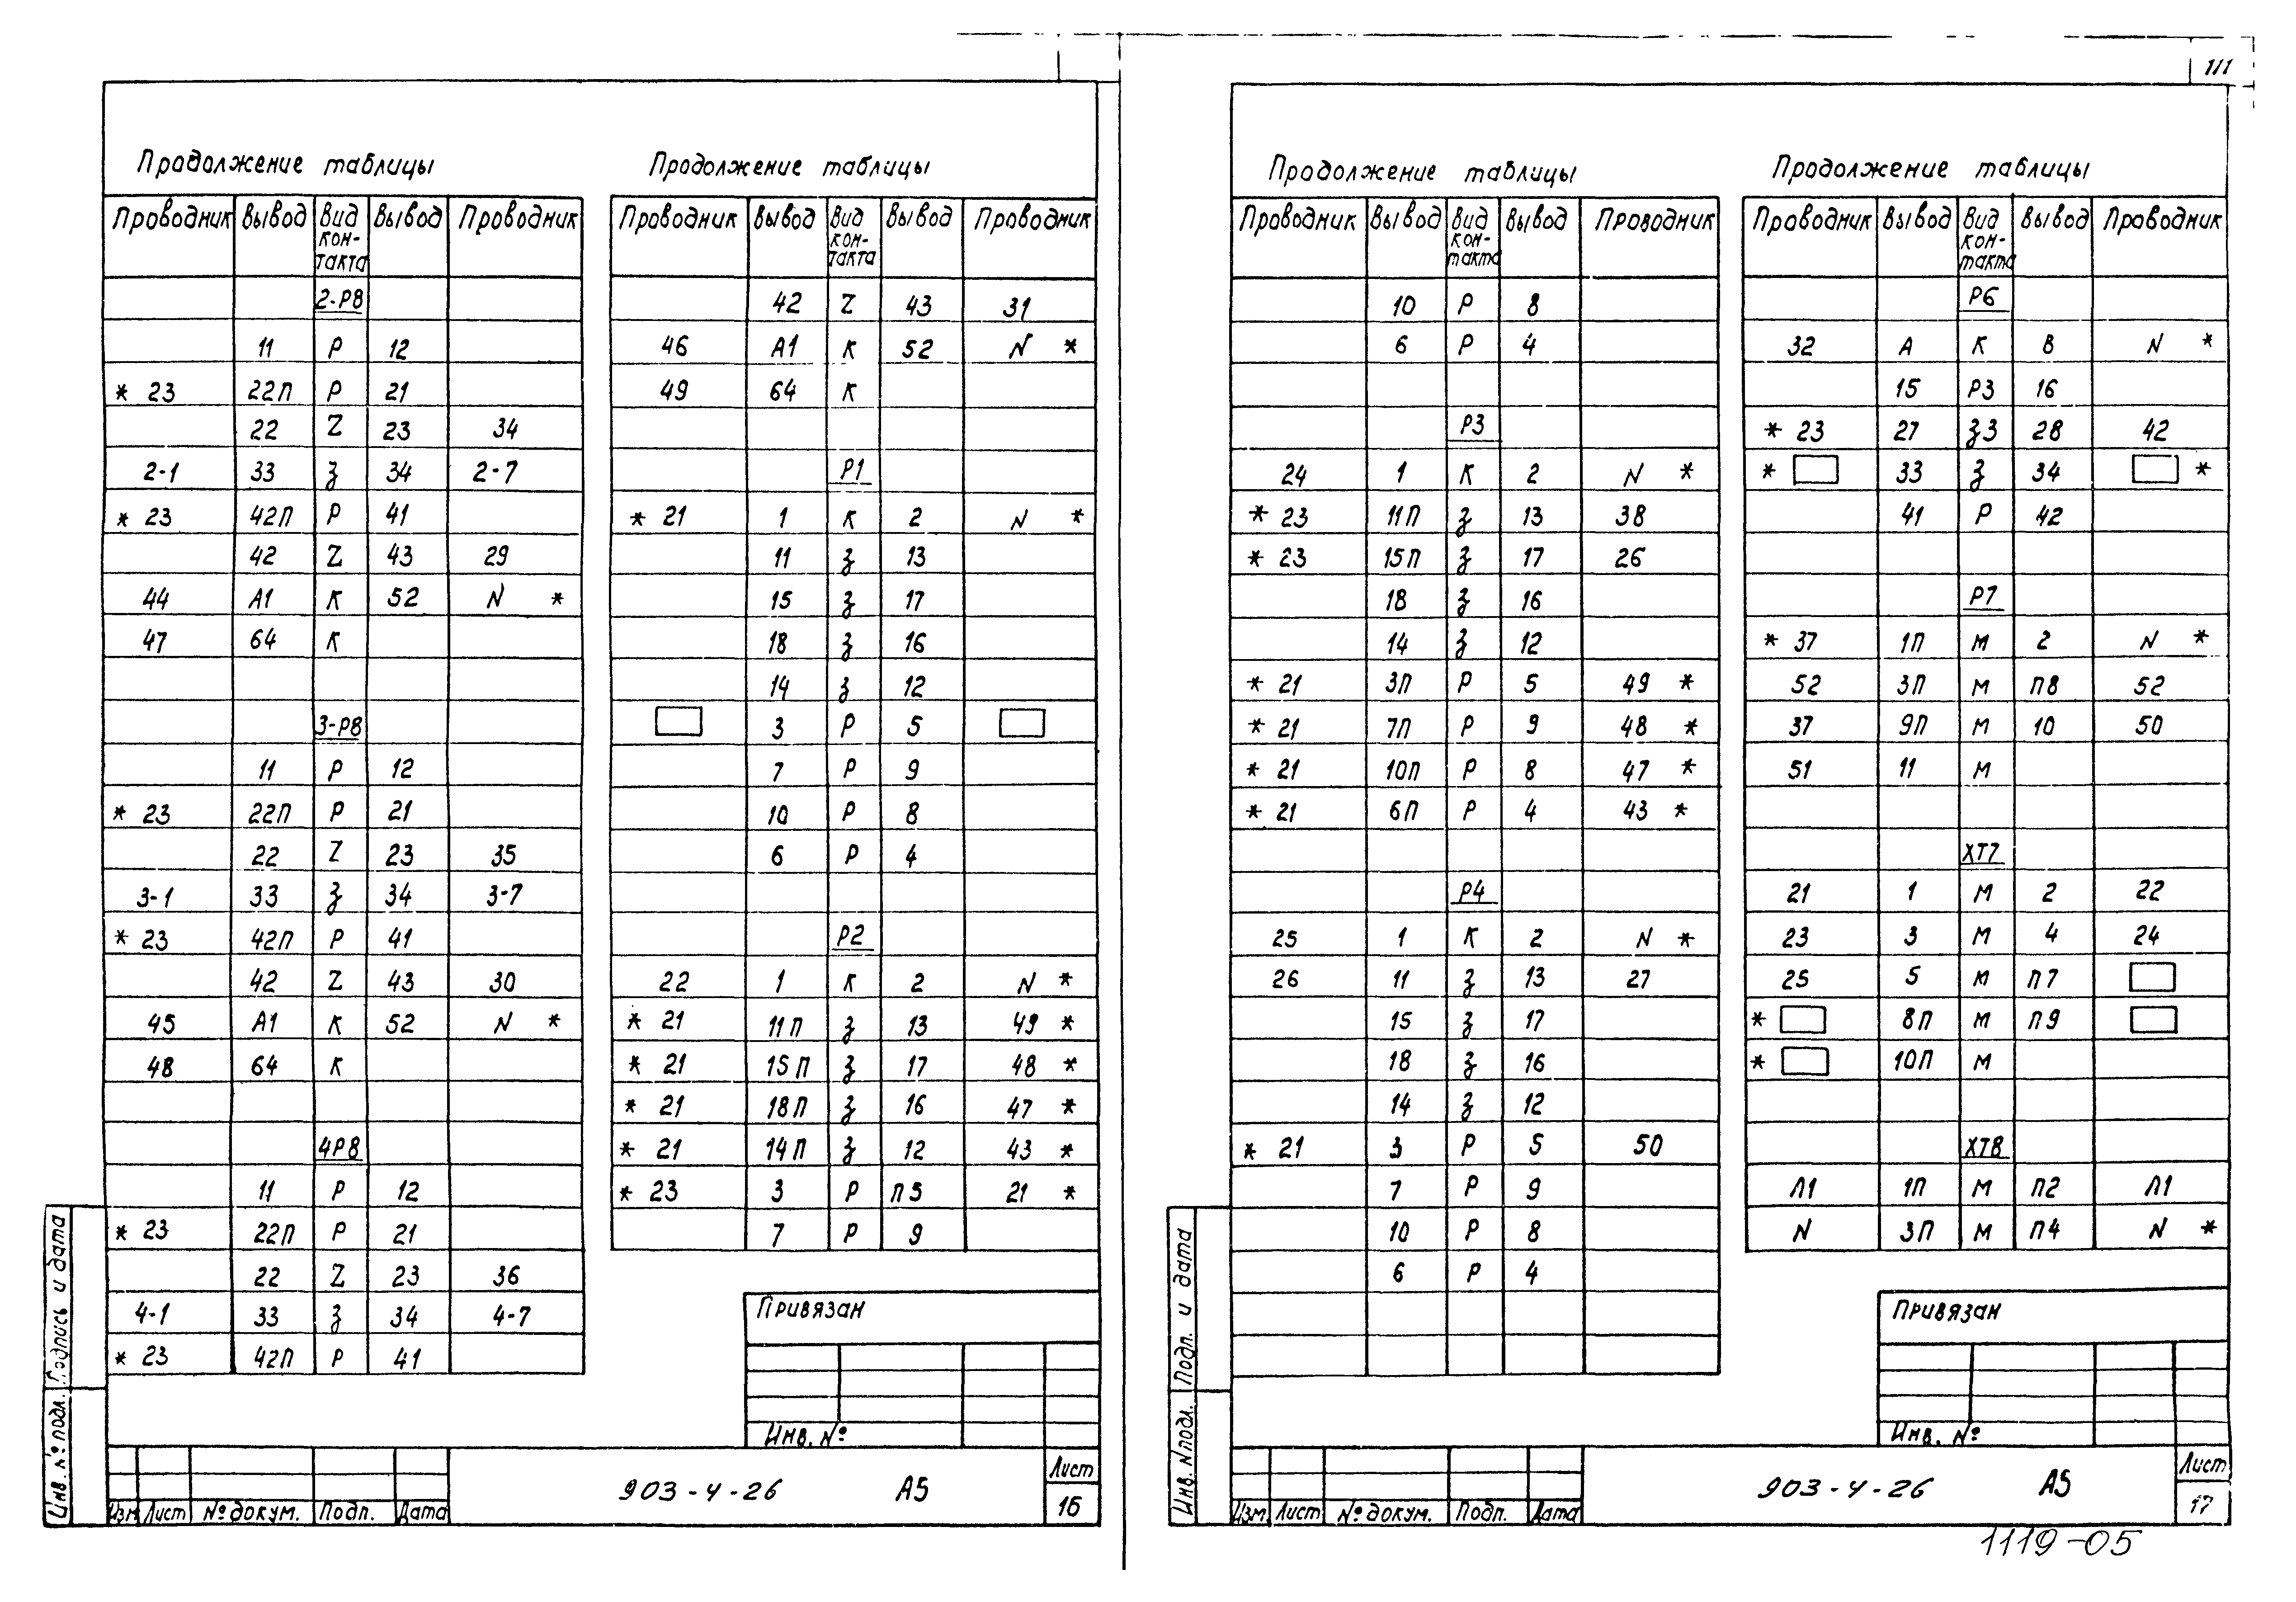 111
Продолжение таблицы
Проводник Вывод Вид кон-такта Вывод Проводник
2-Р8
11 Р 12
* 23 22П Р 21
22 Z 23 34
2-1 33 З 34 2-7
* 23 42П Р 41
42 Z 43 29
44 А1 К 52 N *
47 64 К
3-Р8
11 Р 12
* 23 22П Р 21
22 Z 23 35
3-1 33 З 34 3-7
* 23 42П Р 41
42 Z 43 30
45 А1 К 52 N *
48 64 К
4Р8
11 Р 12
* 23 22П Р 21
22 Z 23 36
4-1 33 З 34 4-7
* 23 42П Р 41
Продолжение таблицы
Проводник Вывод Вид кон-такта Вывод Проводник
42 Z 43 31
46 А1 К 52 N *
49 64 К
Р1
* 21 1 К 2 N *
11 З 13
15 З 17
18 З 16
14 З 12
3 Р 5
7 Р 9
10 Р 8
6 Р 4
Р2
22 1 К 2 N *
* 21 11П З 13 49 *
* 21 15П З 17 48 *
* 21 18П З 16 47 *
* 21 14П З 12 43 *
* 23 3 Р П5 21 *
7 Р 9
Привязан
Инв. №
Инв. № подл. Подпись и дата
Изм Лист № докум. Подп. Дата
903-4-26 А5
Лист
16
Продолжение таблицы
Проводник Вывод Вид кон-такта Вывод Проводник
10 Р 8
6 Р 4
Р3
24 1 К 2 N *
* 23 11П З 13 38
* 23 15П З 17 26
18 З 16
14 З 12
* 21 3П Р 5 49 *
* 21 7П Р 9 48 *
* 21 10П Р 8 47 *
* 21 6П Р 4 43 *
Р4
25 1 К 2 N *
26 11 З 13 27
15 З 17
18 З 16
14 З 12
* 21 3 Р 5 50
7 Р 9
10 Р 8
6 Р 4
Продолжение таблицы
Проводник Вывод Вид кон-такта Вывод Проводник
Р6
32 А К В N *
15 Р3 16
* 23 27 З3 28 42
* 33 З 34 *
41 Р 42
Р7
* 37 1П М 2 N *
52 3П М П8 52
37 9П М 10 50
51 11 М
ХТ7
21 1 М 2 22
23 3 М 4 24
25 5 М П7
* 8П М П9
* 10П М
ХТ8
Л1 1П М П2 Л1
N 3П М П4 N *
Привязан
Инв. №
Инв. N подл. Подп. и дата
Изм Лист № докум. Подп. Дата
903-4-26 А5
Лист
17
1119-05